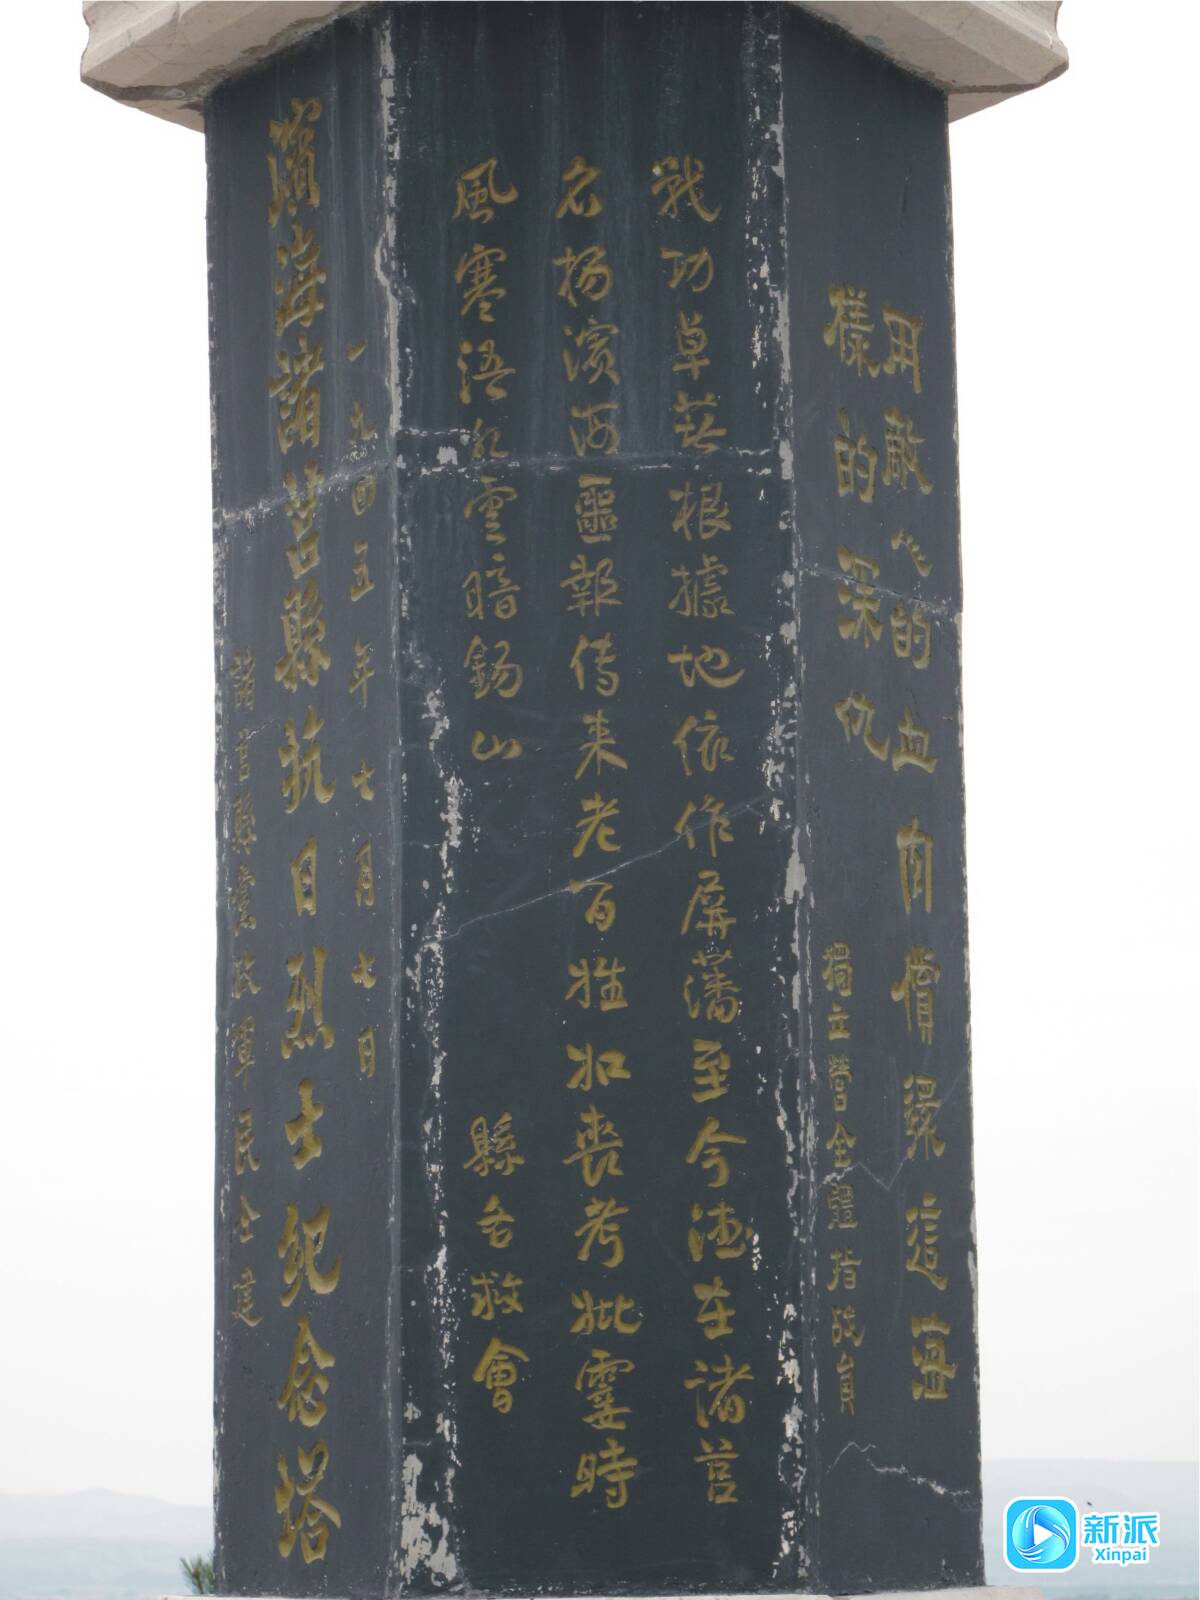 用敵人的血肉償還這
樣的深仇
獨立營全體指战員
戰功卓著根據地依作屏藩至今德在諸莒
名扬濱海噩報传来老百姓如喪考妣霎時
風寒浯水雲暗錫山
縣各救會
一九四五年七月七日
濱海諸莒縣抗日烈士紀念塔
諸莒縣黨政軍民仝建
新派
Xinpai